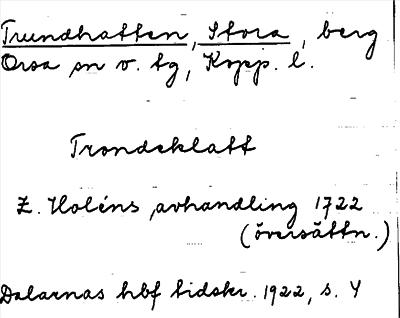 Trundhatten, Stora, berg
Orsa sn v. tg, Kopp. l.
Trondsklatt
Z. Holéns avhandling 1722
(översättn.)
Dalarnas hbf tidskr. 1922, s. 4